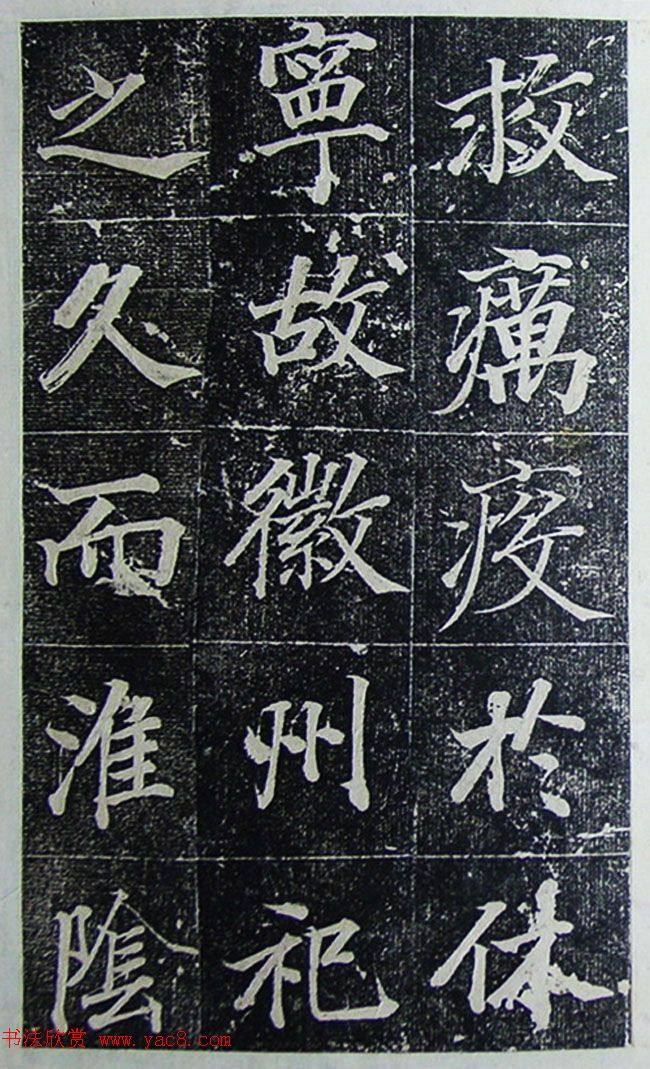 救疠疫於休
寧故徽州祀
之久而淮陰
书法欣赏 www.yac8.com